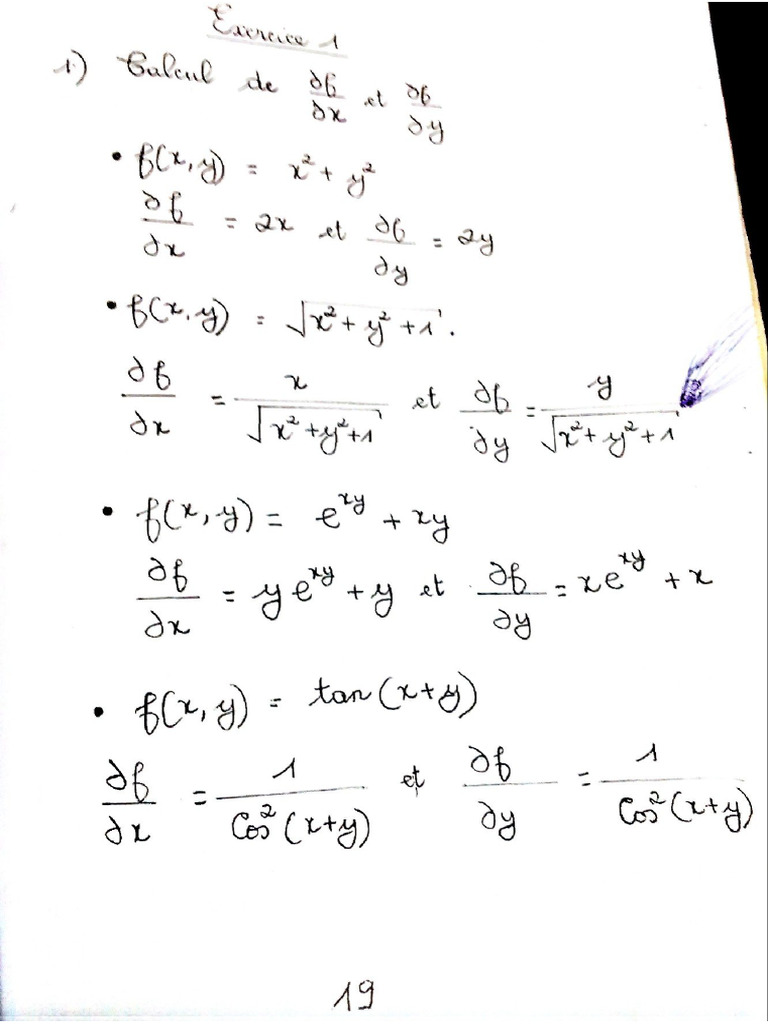 Exercice 1
1) Calcul de ∂f/∂x et ∂f/∂y
• f(x,y) = x² + y²
∂f/∂x = 2x et ∂f/∂y = 2y
• f(x,y) = √(x² + y² + 1).
∂f/∂x = x/√(x²+y²+1) et ∂f/∂y = y/√(x²+y²+1)
• f(x,y) = e^{xy} + xy
∂f/∂x = ye^{xy} + y et ∂f/∂y = xe^{xy} + x
• f(x,y) = tan(x+y)
∂f/∂x = 1/Cos²(x+y) et ∂f/∂y = 1/Cos²(x+y)
19